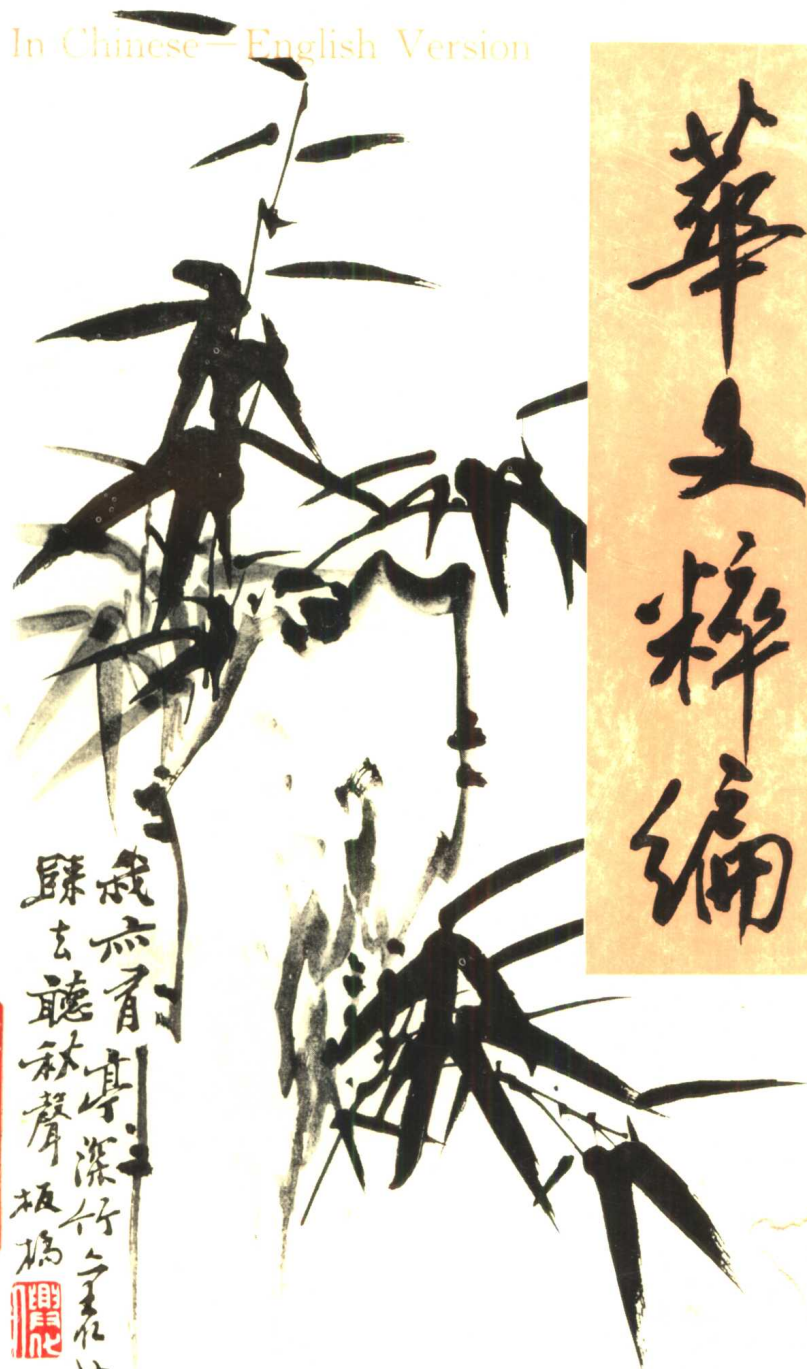 In Chinese—English Version
華文粹編
我亦有亭深竹裏
歸去聽秋聲 板橋